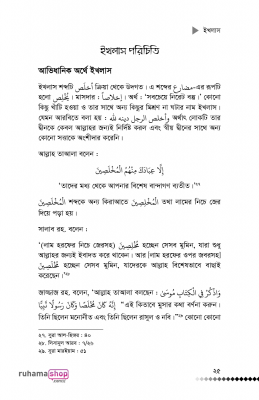 ইখলাস
ইখলাস পরিচিতি
আভিধানিক অর্থে ইখলাস
ইখলাস শব্দটি أخلص ক্রিয়া থেকে উদগত। এ শব্দের مضارع-এর রূপটি
হলো يُخلِص; মাসদার : إخلاصا; অর্থ : 'সবচেয়ে নিরেট বস্তু।' কোনো
কিছু খাঁটি হওয়া ও তার সাথে অন্য কিছুর মিশ্রণ না ঘটার নাম ইখলাস।
যেমন আরবিতে বলা হয় : وأخلص الرجل دينه لله অর্থাৎ লোকটি তার
দ্বীনকে কেবল আল্লাহর জন্যই নির্দিষ্ট করল এবং স্বীয় দ্বীনের সাথে অন্য
কোনো সত্তাকে অংশীদার করেনি।
আল্লাহ তাআলা বলেন :
إِلَّا عِبَادَكَ مِنْهُمُ الْمُخْلَصِينَ
'তাদের মধ্য থেকে আপনার বিশেষ বান্দাগণ ব্যতীত।'২৭
الْمُخْلَصِينَ শব্দকে অন্য কিরাআতে الْمُخْلِصِينَ তথা লামের নিচে জের
দিয়ে পড়া হয়।
সালাব রহ. বলেন :
'(লাম হরফের নিচে জেরসহ) مُخْلِصِينَ হচ্ছেন সেসব মুমিন, যারা শুধু
আল্লাহর জন্যই ইবাদত করে থাকেন। আর (লাম হরফের ওপর জবরসহ)
مُخْلَصِينَ হচ্ছেন সেসব মুমিন, যাদেরকে আল্লাহ বিশেষভাবে বাছাই
করেছেন।'২৮
জাজ্জাজ রহ. বলেন, 'আল্লাহ তাআলা বলছেন : وَاذْكُرْ فِي الْكِتَابِ مُوسَىٰ
إِنَّهُ كَانَ مُخْلَصًا وَكَانَ رَسُولًا نَّبِيًّا "এই কিতাবে মুসার কথা বর্ণনা করুন।
তিনি ছিলেন মনোনীত এবং তিনি ছিলেন রাসুল ও নবি।"২৯ কোনো কোনো
২৭. সুরা আল-হিজর : ৪০
২৮. লিসানুল আরব : ৭/২৬
২৯. সুরা মারইয়াম : ৫১
২৫
ruhamashop